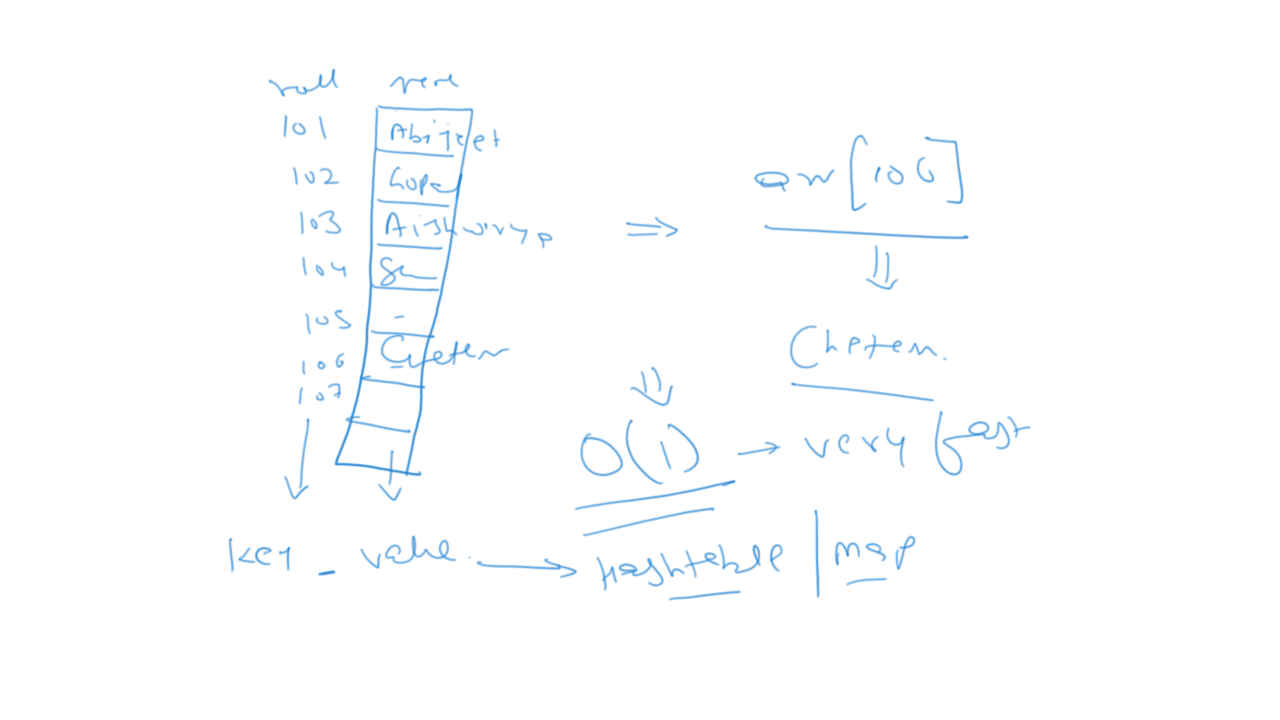 roll name
101 Abijeet
102 Gopal
103 Aishwarya
104
105 -
106 Chetan
107
⇒ arr[106]
⇓
Chetan.
⇓
O(1) → very fast
key - value → hashtable | map